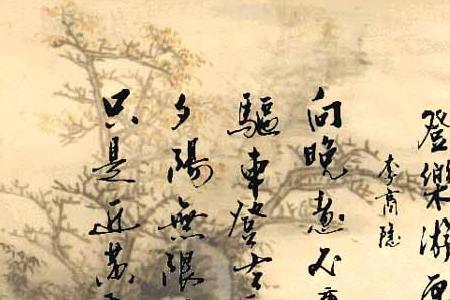 登樂游原
李商隐
向晚意不
驅車登古
夕陽無限
只是近黄